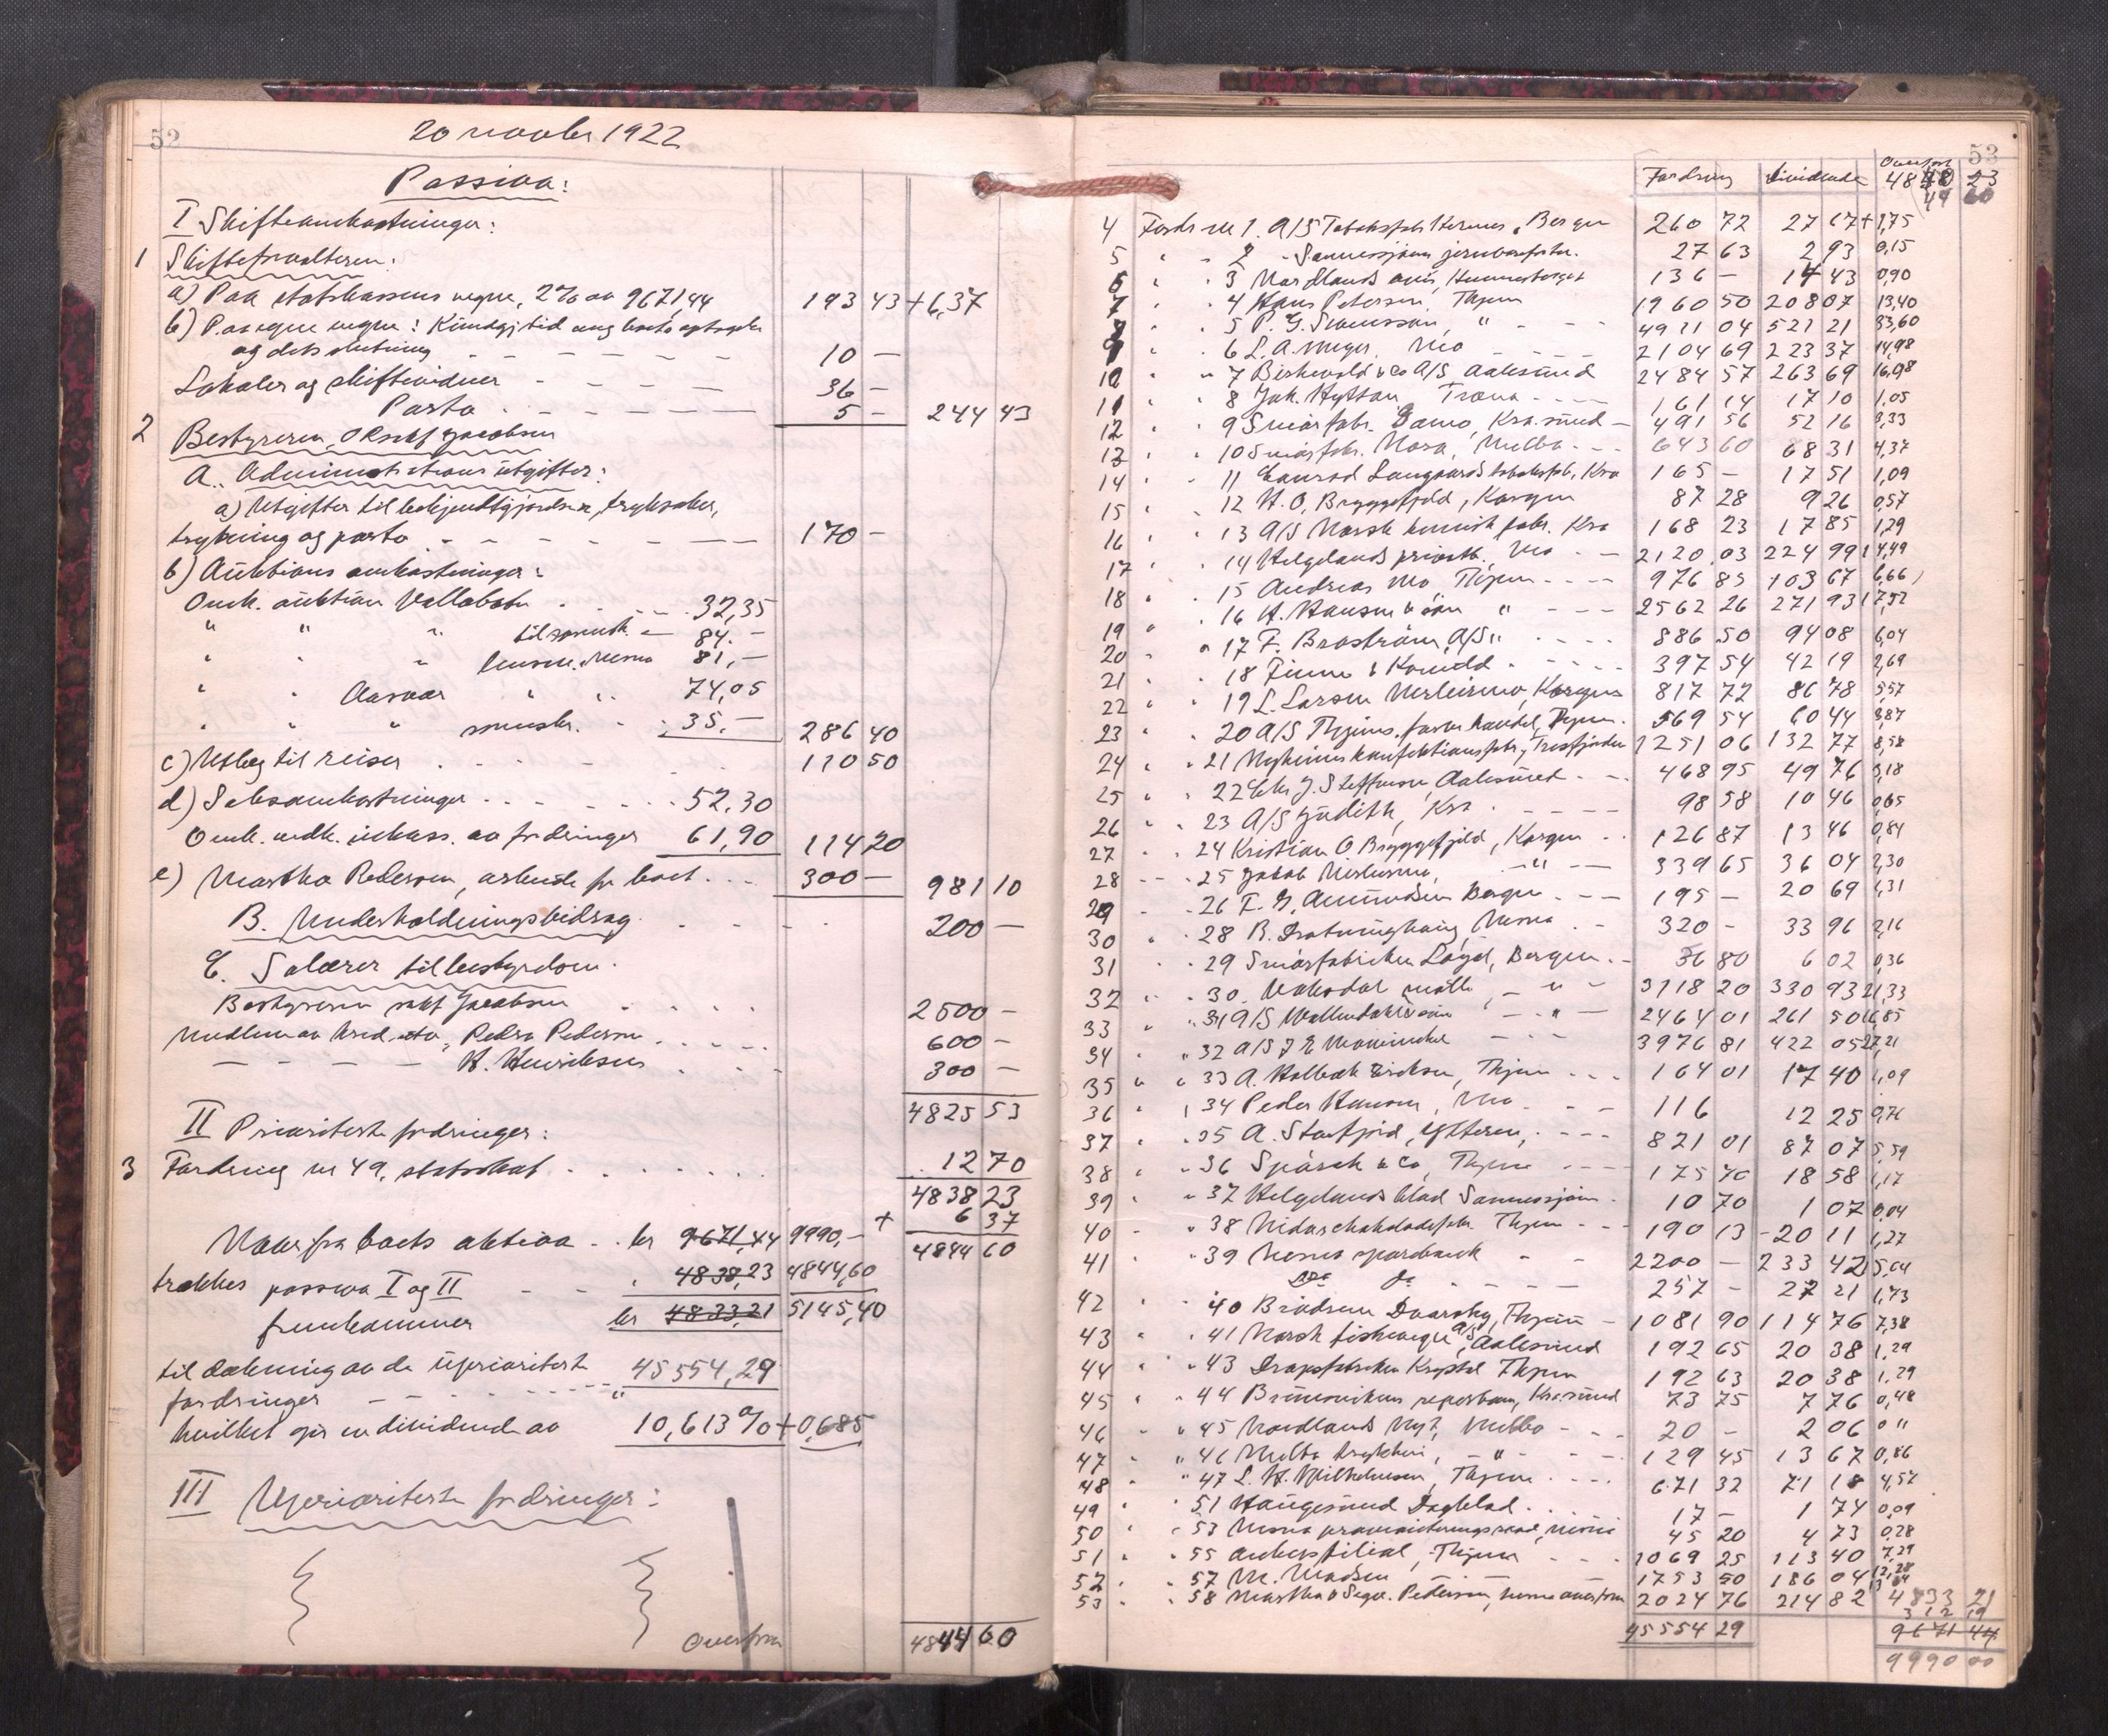 52
20 november 1922
Passiva:
I Skifteomkostninger:
1 Skifteforvalteren:
a) Paa statskassens vegne, 2% av 9671,44 193 43 + 6,37
b) Paa egne vegne: Kundgj. tid ang boets
og dets slutning 10 —
Lokaler og skiftevidner 36 —
Porto 5 — 244 43
2 Bestyreren, O.R.sakf Jacobsen
A. Administrationsutgifter:
a) Utgifter til bekjendtgjørelser, tryksaker,
trykning og porto 170 —
b) Auktions omkostninger:
Omk. auktion 32,35
" " " 84.—
" " " 81,—
" " Aasvær " " 74,05
" " " 35.— 286 40
c) Utlæg til reiser 110 50
d) Saksomkostninger 52,30
Omk. vedk. inkass. av fordringer 61,90 114 20
e) Martha Pedersen, arbeide for boet 300 — 981 10
B. Underholdningsbidrag 200 —
C. Salærer til bostyrelsen.
Bestyreren sakf Jacobsen 2500 —
Medlem av kred. utv. Peder Pedersen 600 —
— — — H. Henriksen 300 —
4825 53
II Prioriterte fordringer:
3 Fordring nr 49, statsskat 12 70
4838 23
+ 6 37
Naar fra boets aktiva kr 9671,44 9990,— 4844 60
trækkes passiva I og II " 4838,23 4844,60
fremkommer kr 4833,21 5145,40
til dækning av de uprioriterte
fordringer " 45554,29
hvilket gir en dividende av 10,613% + 0,685
III Uprioriterte fordringer:
Overføres 4844 60
53
Fordring Dividende Overført
4838 23
44 60
4 Fordr nr 1. A/S Tobaksfabr Hermes, Bergen 260 72 27 67 + 1,75
5 " " 2 Sannessjøen 27 63 2 93 0,15
6 " " 3 Nordlands avis, Hemnesberget 136 — 14 43 0,90
7 " " 4 Hans Petersen, Thjem 1960 50 208 07 13,40
8 " " 5 P. G. Svensson, " 4911 04 521 21 33,60
9 " " 6 L. A. Meyer, Mo 2104 69 223 37 14,98
10 " " 7 Birkevold & Co A/S Aalesund 2484 57 263 69 16,98
11 " " 8 Jak. Hyttan, Træna 161 14 17 10 1,05
12 " " 9 Smørfabr. Damo, Kra.sund 491 56 52 16 3,33
13 " " 10 Smørfabr. Nora, Melbo 643 60 68 31 4,37
14 " " 11 Conrad Langaards tobaksfab, Kra 165 — 17 51 1,09
15 " " 12 H. O. Bryggefjeld, Korgen 87 28 9 26 0,57
16 " " 13 A/S Norsk kemisk fabr. Kra 168 23 17 85 1,29
17 " " 14 Helgelands privatb. Mo 2120,03 224 99 14,49
18 " " 15 Andreas Mo, Thjem 976 85 103 67 6,66
19 " " 16 H. Hansen & søn " 2562 26 271 93 17,52
20 " " 17 F. Broström A/S " 886 50 94 08 6,04
21 " " 18 Finne & Konvold 397 54 42 19 2,69
22 " " 19 L. Larsen Nerleirmo, Korgen 817 72 86 78 5,57
23 " " 20 A/S Thjems farvehandel, Thjem 569 54 60 44 3,87
24 " " 21 Myhrenes konfektionsfabr, Tresfjorden 1251 06 132 77 8,58
25 " " 22 J. Steffensen Aalesund 468 95 49 76 3,18
26 " " 23 A/S Judith, Kra 98 58 10 46 0,65
27 " " 24 Kristian O Bryggefjeld, Korgen 126 87 13 46 0,84
28 " " 25 Jakob Nerleirmo, " 339 65 36 04 2,30
29 " " 26 F. G. Amundsen Bergen 195 — 20 69 1,31
30 " " 28 B. Dronninghaug, Nesna 320 — 33 96 2,16
31 " " 29 Smørfabrikken Løyd, Bergen 56 80 6 02 0,36
32 " " 30. Vaksdal mølle " 3118 20 330 93 21,33
33 " " 31 A/S Wallendahl & søn " 2464 01 261 50 16,85
34 " " 32 A/S J E Mowinckel 3976 81 422 05 27,21
35 " " 33 A. Holbæk Eriksen, Thjem 164 01 17 40 1,09
36 " " 34 Peder Hansen, Mo 116 12 25 0,76
37 " " 35 A. Storfjord, Ytteren, 821 01 87 07 5,59
38 " " 36 Spørck & Co, Thjem 175 70 18 58 1,17
39 " " 37 Helgelands blad Sannessjøen 10 70 1 07 0,04
40 " " 38 Nidar chokoladefabr. Thjem 190 13 20 11 1,27
41 " " 39 Nesna sparebank 2200 — 233 42 15,04
Do do 257 — 27 21 1,73
42 " " 40 Brødrene Dvorsky, Thjem 1081 90 114 76 7,38
43 " " 41 Norsk fiskevegn A/S, Aalesund 192 65 20 38 1,29
44 " " 43 Dropsfabrikken Krystal Thjem 192 63 20 38 1,29
45 " " 44 Brunsvikens reperbane, Kra.sund 73 75 7 76 0,48
46 " " 45 Nordlands Nyt, Melbo 20 — 2 06 0 11
47 " " 46 Melbo trykkeri, " 129 45 13 67 0,86
48 " " 47 L. H. Wilhelmsen, Thjem 671 32 71 18 4,57
49 " " 51 Haugesund Dagblad 17 — 1 74 0,09
50 " " 53 Nesna provianteringsraad, Nesna 45 20 4 73 0,28
51 " " 55 Ankers filial, Thjem 1069 25 113 40 7,29
52 " " 57 M. Madsen 1753 50 186 04 12,28
53 " " 58 Martha & Segv. Pedersen, Nesna 2024 76 214 82 4833 21
312 19
45554 29 9671 44
9990 00